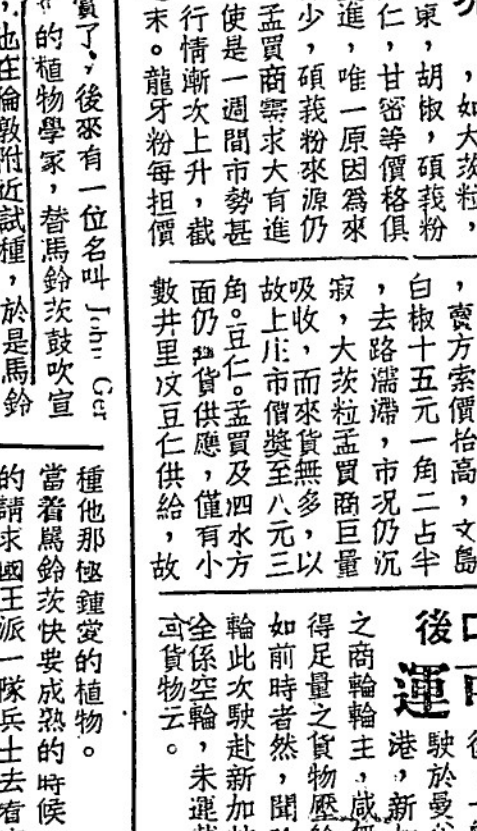 如大茨粒，
東，胡椒，碩莪粉
仁，甘密等價格俱
進，唯一原因為來
少，碩莪粉來源仍
孟買商需求大有進
使是一週間市勢甚
行情漸次上升，截
末。龍牙粉每担價
，賣方索價抬高，文島
白椒十五元一角二占半
，去路濡滯，市况仍沉
寂，大茨粒孟買商巨量
吸收，而來貨無多，以
故上庄市價獎至八元三
角。豆仁。孟買及泗水方
面仍 貨供應，僅有小
數井里汶豆仁供給，故
後
運
駛於曼
港，新
之商輪輪主，咸
得足量之貨物壓
如前時者然，聞
輪此次駛赴新加
全係空輪，未運
貨物云。
了，後來有一位名叫 John Ger
的植物學家，替馬鈴茨鼓吹宣
，也在倫敦附近試種，於是馬鈴
種他那極鍾愛的植物。
當着馬鈴茨快要成熟的時候
的請求國王派一隊兵士去看